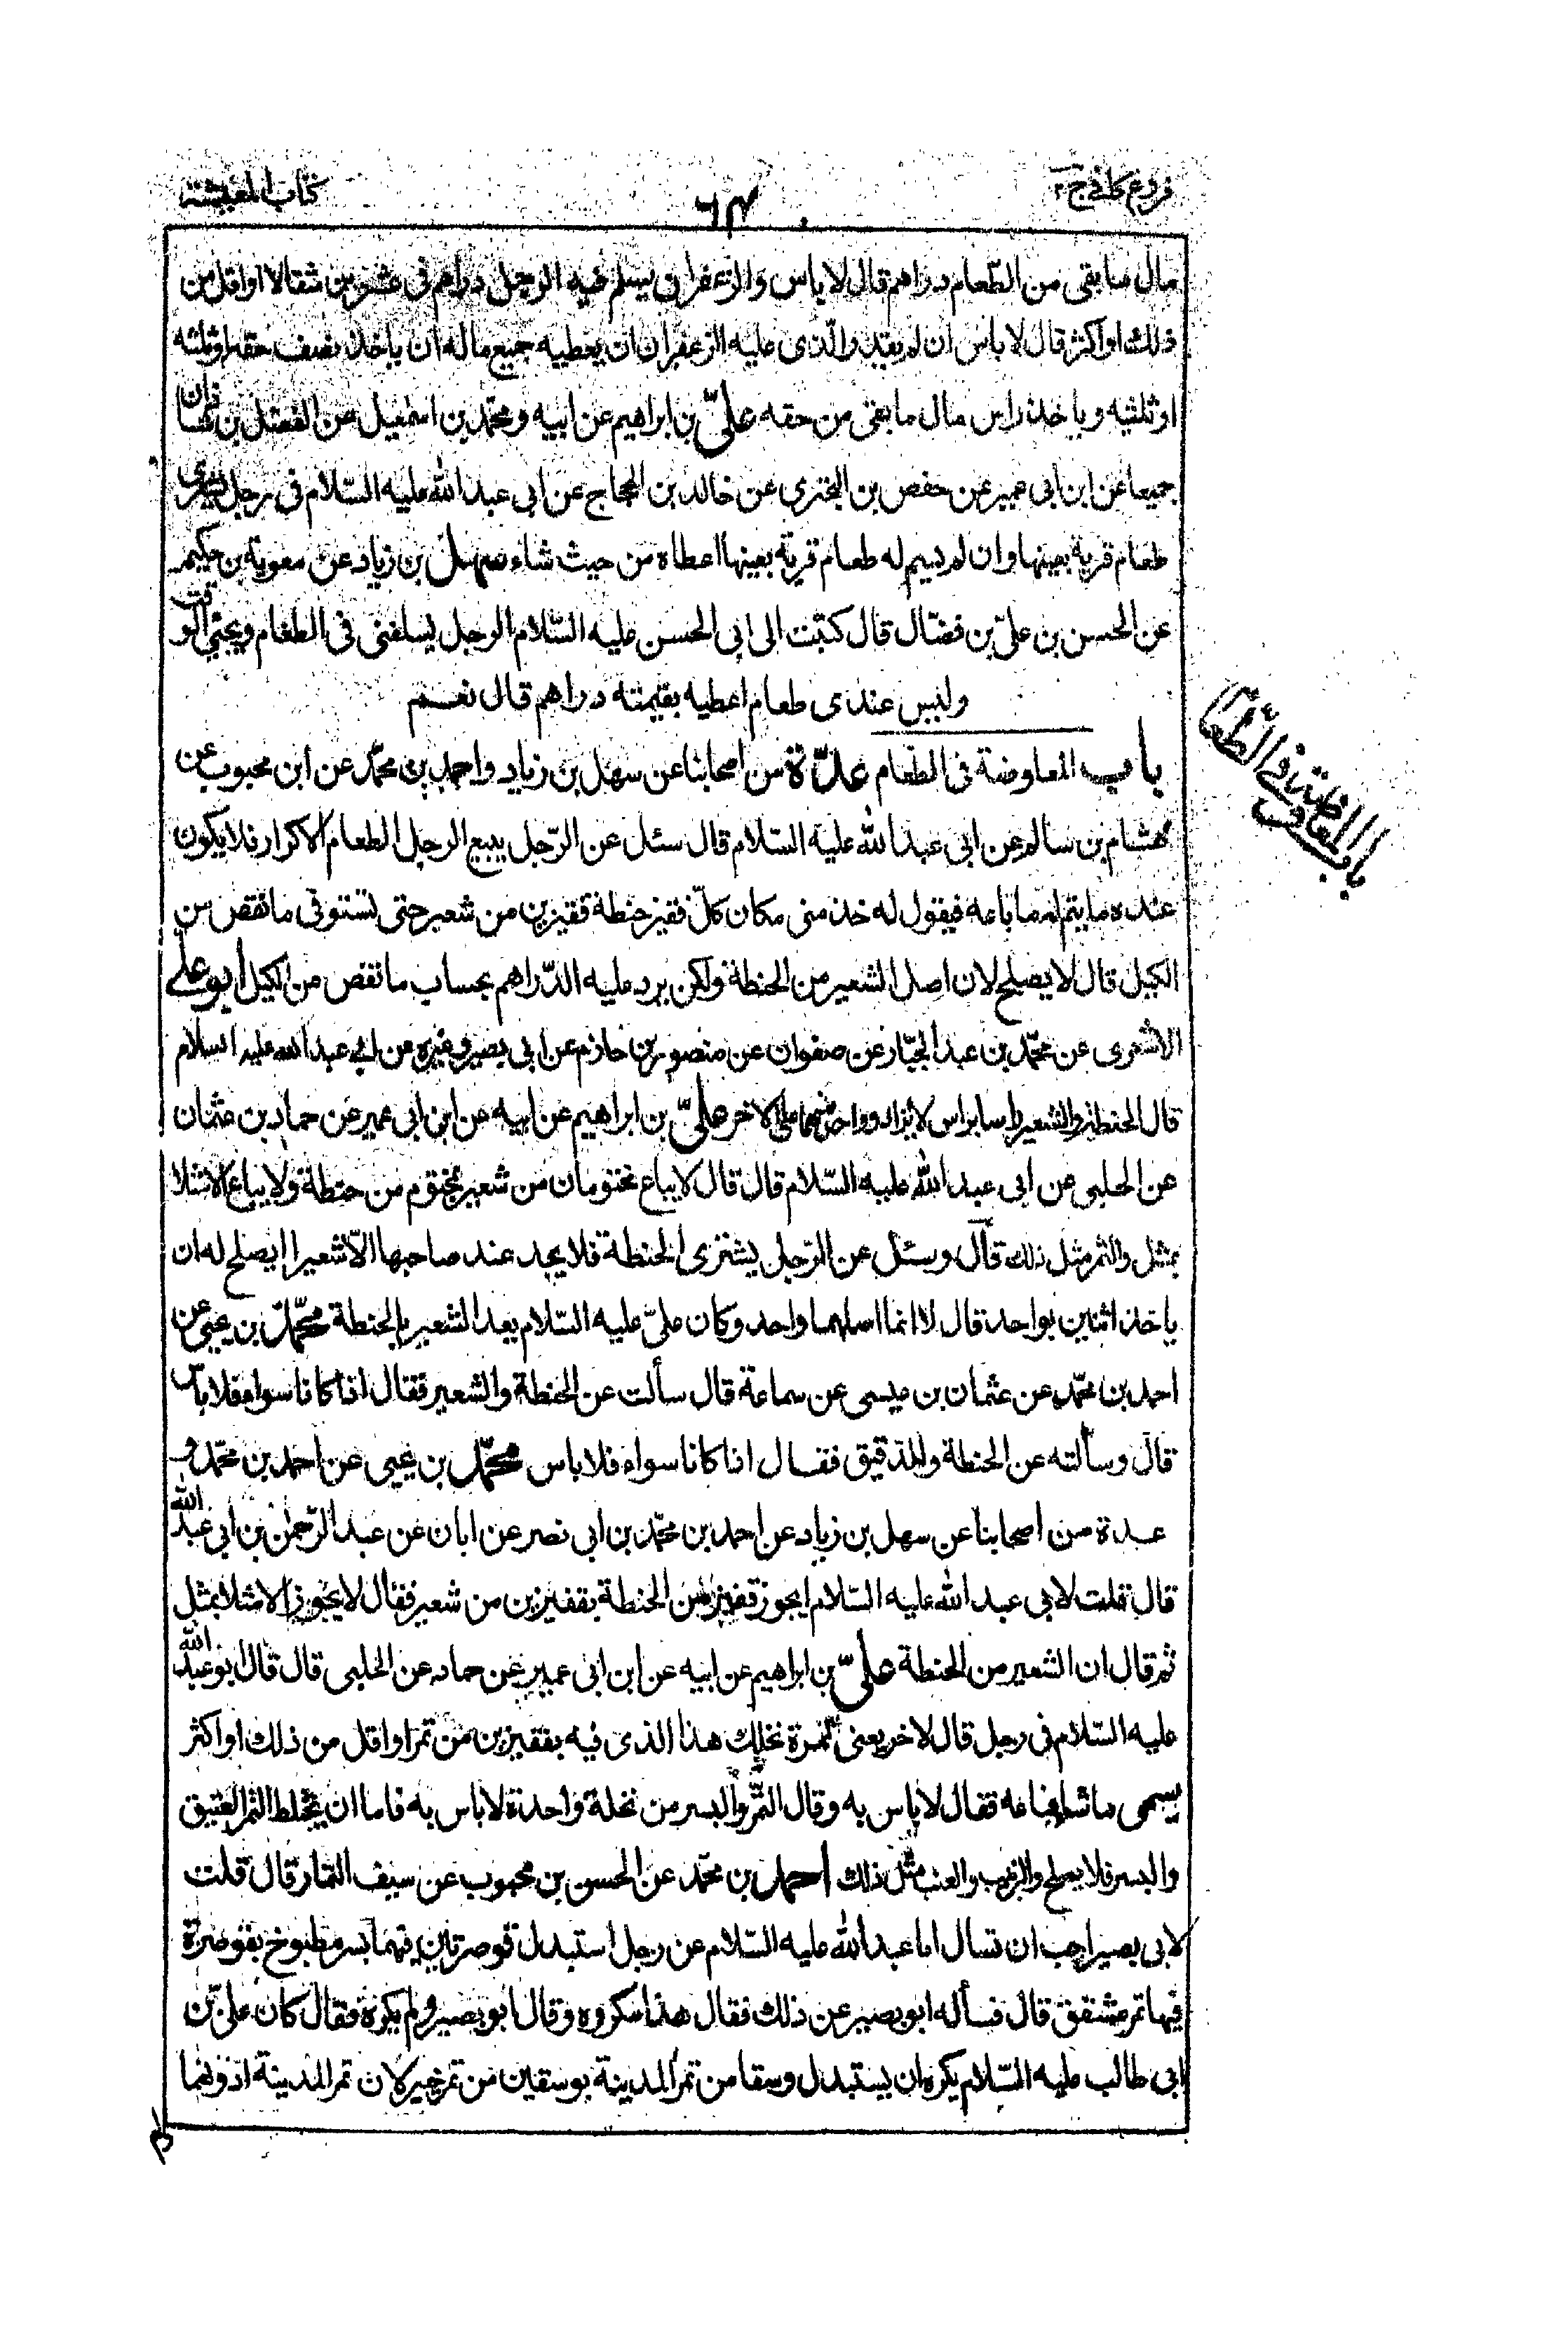 فروع كافى ج٢
كتاب المعيشة
مال ما بقى من الطّعام دراهم قال لا باس والزعفران يسلم فيه الرجل دراهم فى عشرين مثقالا او اقل من
ذلك او اكثر قال لا باس ان لم يقدر الّذى عليه الزعفران ان يعطيه جميع ماله ان ياخذ نصف حقه او ثلثه
او ثلثيه وياخذ راس مال ما بقى من حقه علىّ بن ابراهيم عن ابيه ومحمّد بن اسمعيل عن الفضل بن شاذان
جميعا عن ابن ابى عمير عن حفص بن البخترى عن خالد بن الحجاج عن ابى عبد الله عليه السّلام فى رجل يشترى
طعام قرية بعينها وان لم يسم له طعام قرية بعينها اعطاه من حيث شاء سهل بن زياد عن معوية بن حكيم
عن الحسن بن علىّ بن فضّال قال كتبت الى ابى الحسن عليه السّلام الرجل يسلفنى فى الطعام ويجئ الوقت
وليس عندى طعام اعطيه بقيمته دراهم قال نعم
باب المعاوضة فى الطعام
باب المعاوضة فى الطعام عدّة من اصحابنا عن سهل بن زياد واحمد بن محمّد عن ابن محبوب عن
هشام بن سالم عن ابى عبد الله عليه السّلام قال سئل عن الرّجل يبيع الرجل الطعام الاكرار فلا يكون
عنده ما يتم له ما باعه فيقول له خذ منى مكان كلّ قفيز حنطة قفيزين من شعير حتى تستوفى ما نقص من
الكيل قال لا يصلح لان اصل الشعير من الحنطة ولكن يرد عليه الدّراهم بحساب ما نقص من الكيل ابو على
الاشعرى عن محمّد بن عبد الجبّار عن صفوان عن منصور بن حازم عن ابى بصير وغيره عن ابى عبد الله عليه السلام
قال الحنطة والشعير راسا براس لا يزاد واحد منهما على الاخر علىّ بن ابراهيم عن ابيه عن ابن ابى عمير عن حماد بن عثمان
عن الحلبى عن ابى عبد الله عليه السّلام قال قال لا يباع مختومان من شعير بمختوم من حنطة ولا يباع الا مثلا
بمثل والتمر مثل ذلك قال وسئل عن الرّجل يشترى الحنطة فلا يجد عند صاحبها الّا شعيرا ايصلح له ان
ياخذ اثنين بواحد قال لا انما اصلهما واحد وكان علىّ عليه السّلام يعد الشعير بالحنطة محمّد بن يحيى عن
احمد بن محمّد عن عثمان بن عيسى عن سماعة قال سألت عن الحنطة والشعير فقال اذا كانا سواء فلا باس
قال وسألته عن الحنطة والدّقيق فقال اذا كانا سواء فلا باس محمّد بن يحيى عن احمد بن محمّد و
عدة من اصحابنا عن سهل بن زياد عن احمد بن محمّد بن ابى نصر عن ابان عن عبد الرّحمن بن ابى عبد الله
قال قلت لابى عبد الله عليه السّلام ايجوز قفيز من الحنطة بقفيزين من شعير فقال لا يجوز الا مثلا بمثل
ثم قال ان الشعير من الحنطة علىّ بن ابراهيم عن ابيه عن ابن ابى عمير عن حماد عن الحلبى قال قال ابو عبد الله
عليه السّلام فى رجل قال لاخر بعنى ثمرة نخلك هذا الذى فيه بقفيزين من تمر او اقل من ذلك او اكثر
يسمى ما شاء فباعه فقال لا باس به وقال التمر والبسر من نخلة واحدة لا باس به فاما ان يختلط التمر العتيق
والبسر فلا يصلح والزبيب والعنب مثل ذلك احمد بن محمّد عن الحسن بن محبوب عن سيف التمار قال قلت
لابى بصير احب ان تسال ابا عبد الله عليه السّلام عن رجل استبدل قوصرتين فيهما بسر مطبوخ بقوصرة
فيها تمر مشقق قال فسأله ابو بصير عن ذلك فقال هذا مكروه وقال ابو بصير ولم يكره فقال كان على بن
ابى طالب عليه السّلام يكره ان يستبدل وسقا من تمر المدينة بوسقين من تمر خيبر لان تمر المدينة ادونهما